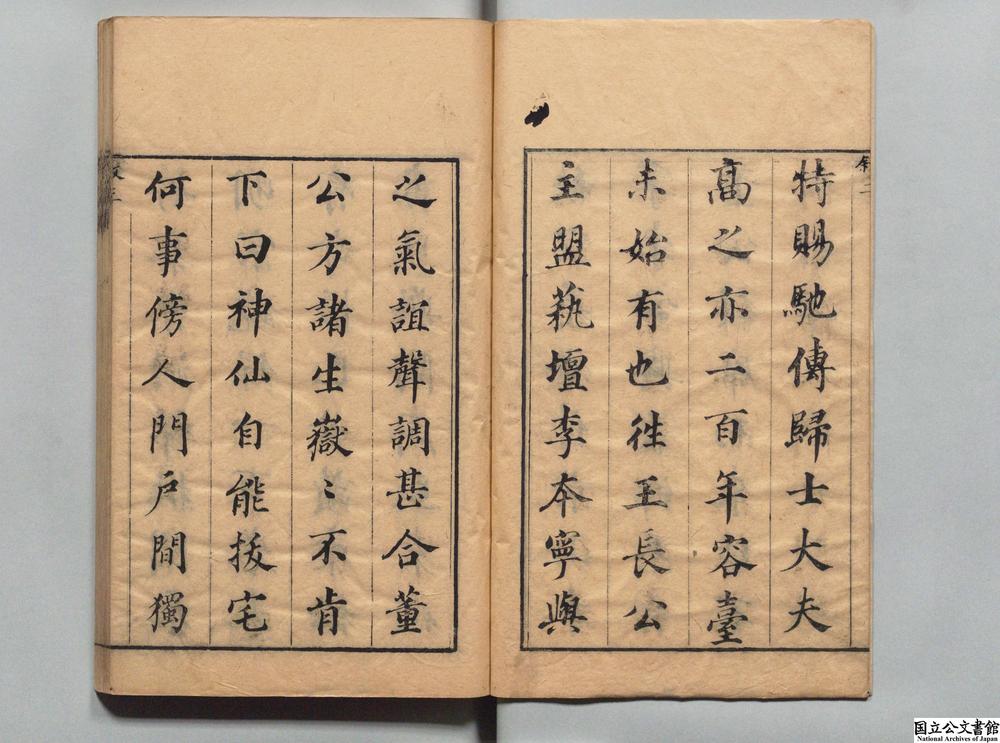 特賜馳傳歸士大夫
高之亦二百年容臺
未始有也徃王長公
主盟蓺壇李夲寧與
之氣誼聲調甚合董
公方諸生嶽〻不肯
下曰神仙自能拔宅
何事傍人門戶間獨
国立公文書館
National Archives of Japan